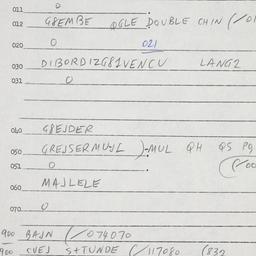 011 0
012 G8EMBE OGLE DOUBLE CHIN (/01
020 0 021
030 DIBORDIZG81VENCU LANG2
031 0
040 G8EJDER
050 GREJSERMUYL )-MUL QH QS PQ
051 0 (/00
060 MAJLELE
070 0
900 BAJN (/074070
900 CVEJ S+TUNDE (/117080 (832